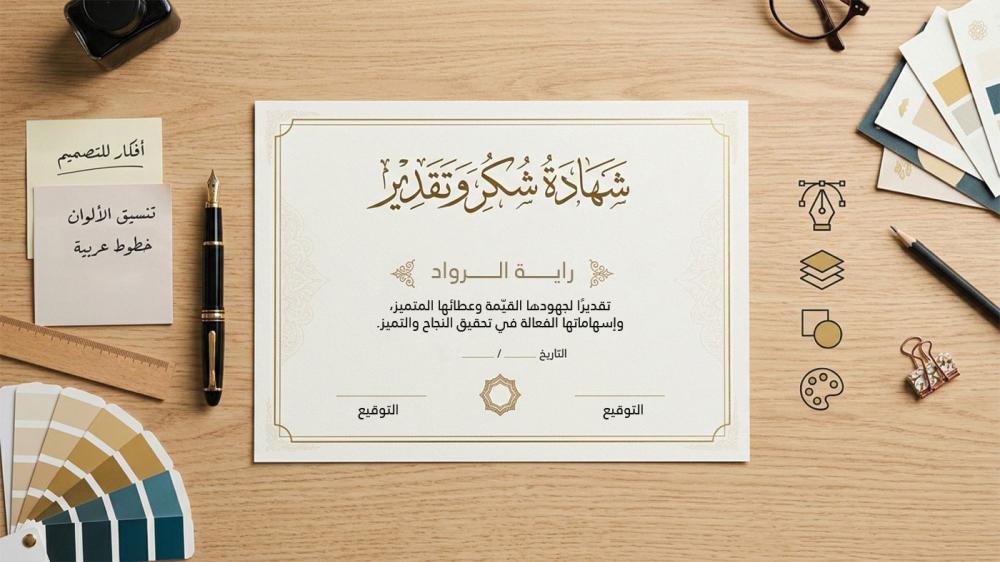 أفكار للتصميم
تنسيق الألوان
خطوط عربية
شَهَادَةُ شُكْرٍ وَتَقَدِيْرٍ
رايـــة الـــرواد
تقديرًا لجهودها القيّمة وعطائها المتميز،
وإسهاماتها الفعالة في تحقيق النجاح والتميز.
التاريخ ______ / ______
التوقيع
التوقيع